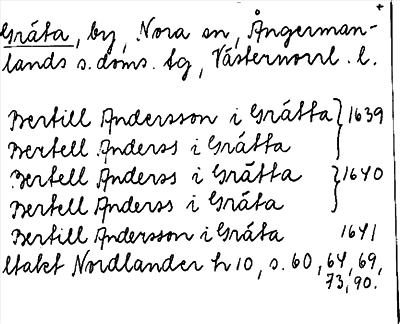 Gråta, by, Nora sn, Ångerman-
lands s. doms. tg, Västernorrl. l.
Bertill Andersson i Gråtta } 1639
Bertell Anderss i Gråtta
Bertell Anderss i Gråtta } 1640
Bertell Anderss i Gråta
Bertill Andersson i Gråta 1641
Utakt Nordlander h 10, s. 60, 64, 69,
73, 90.